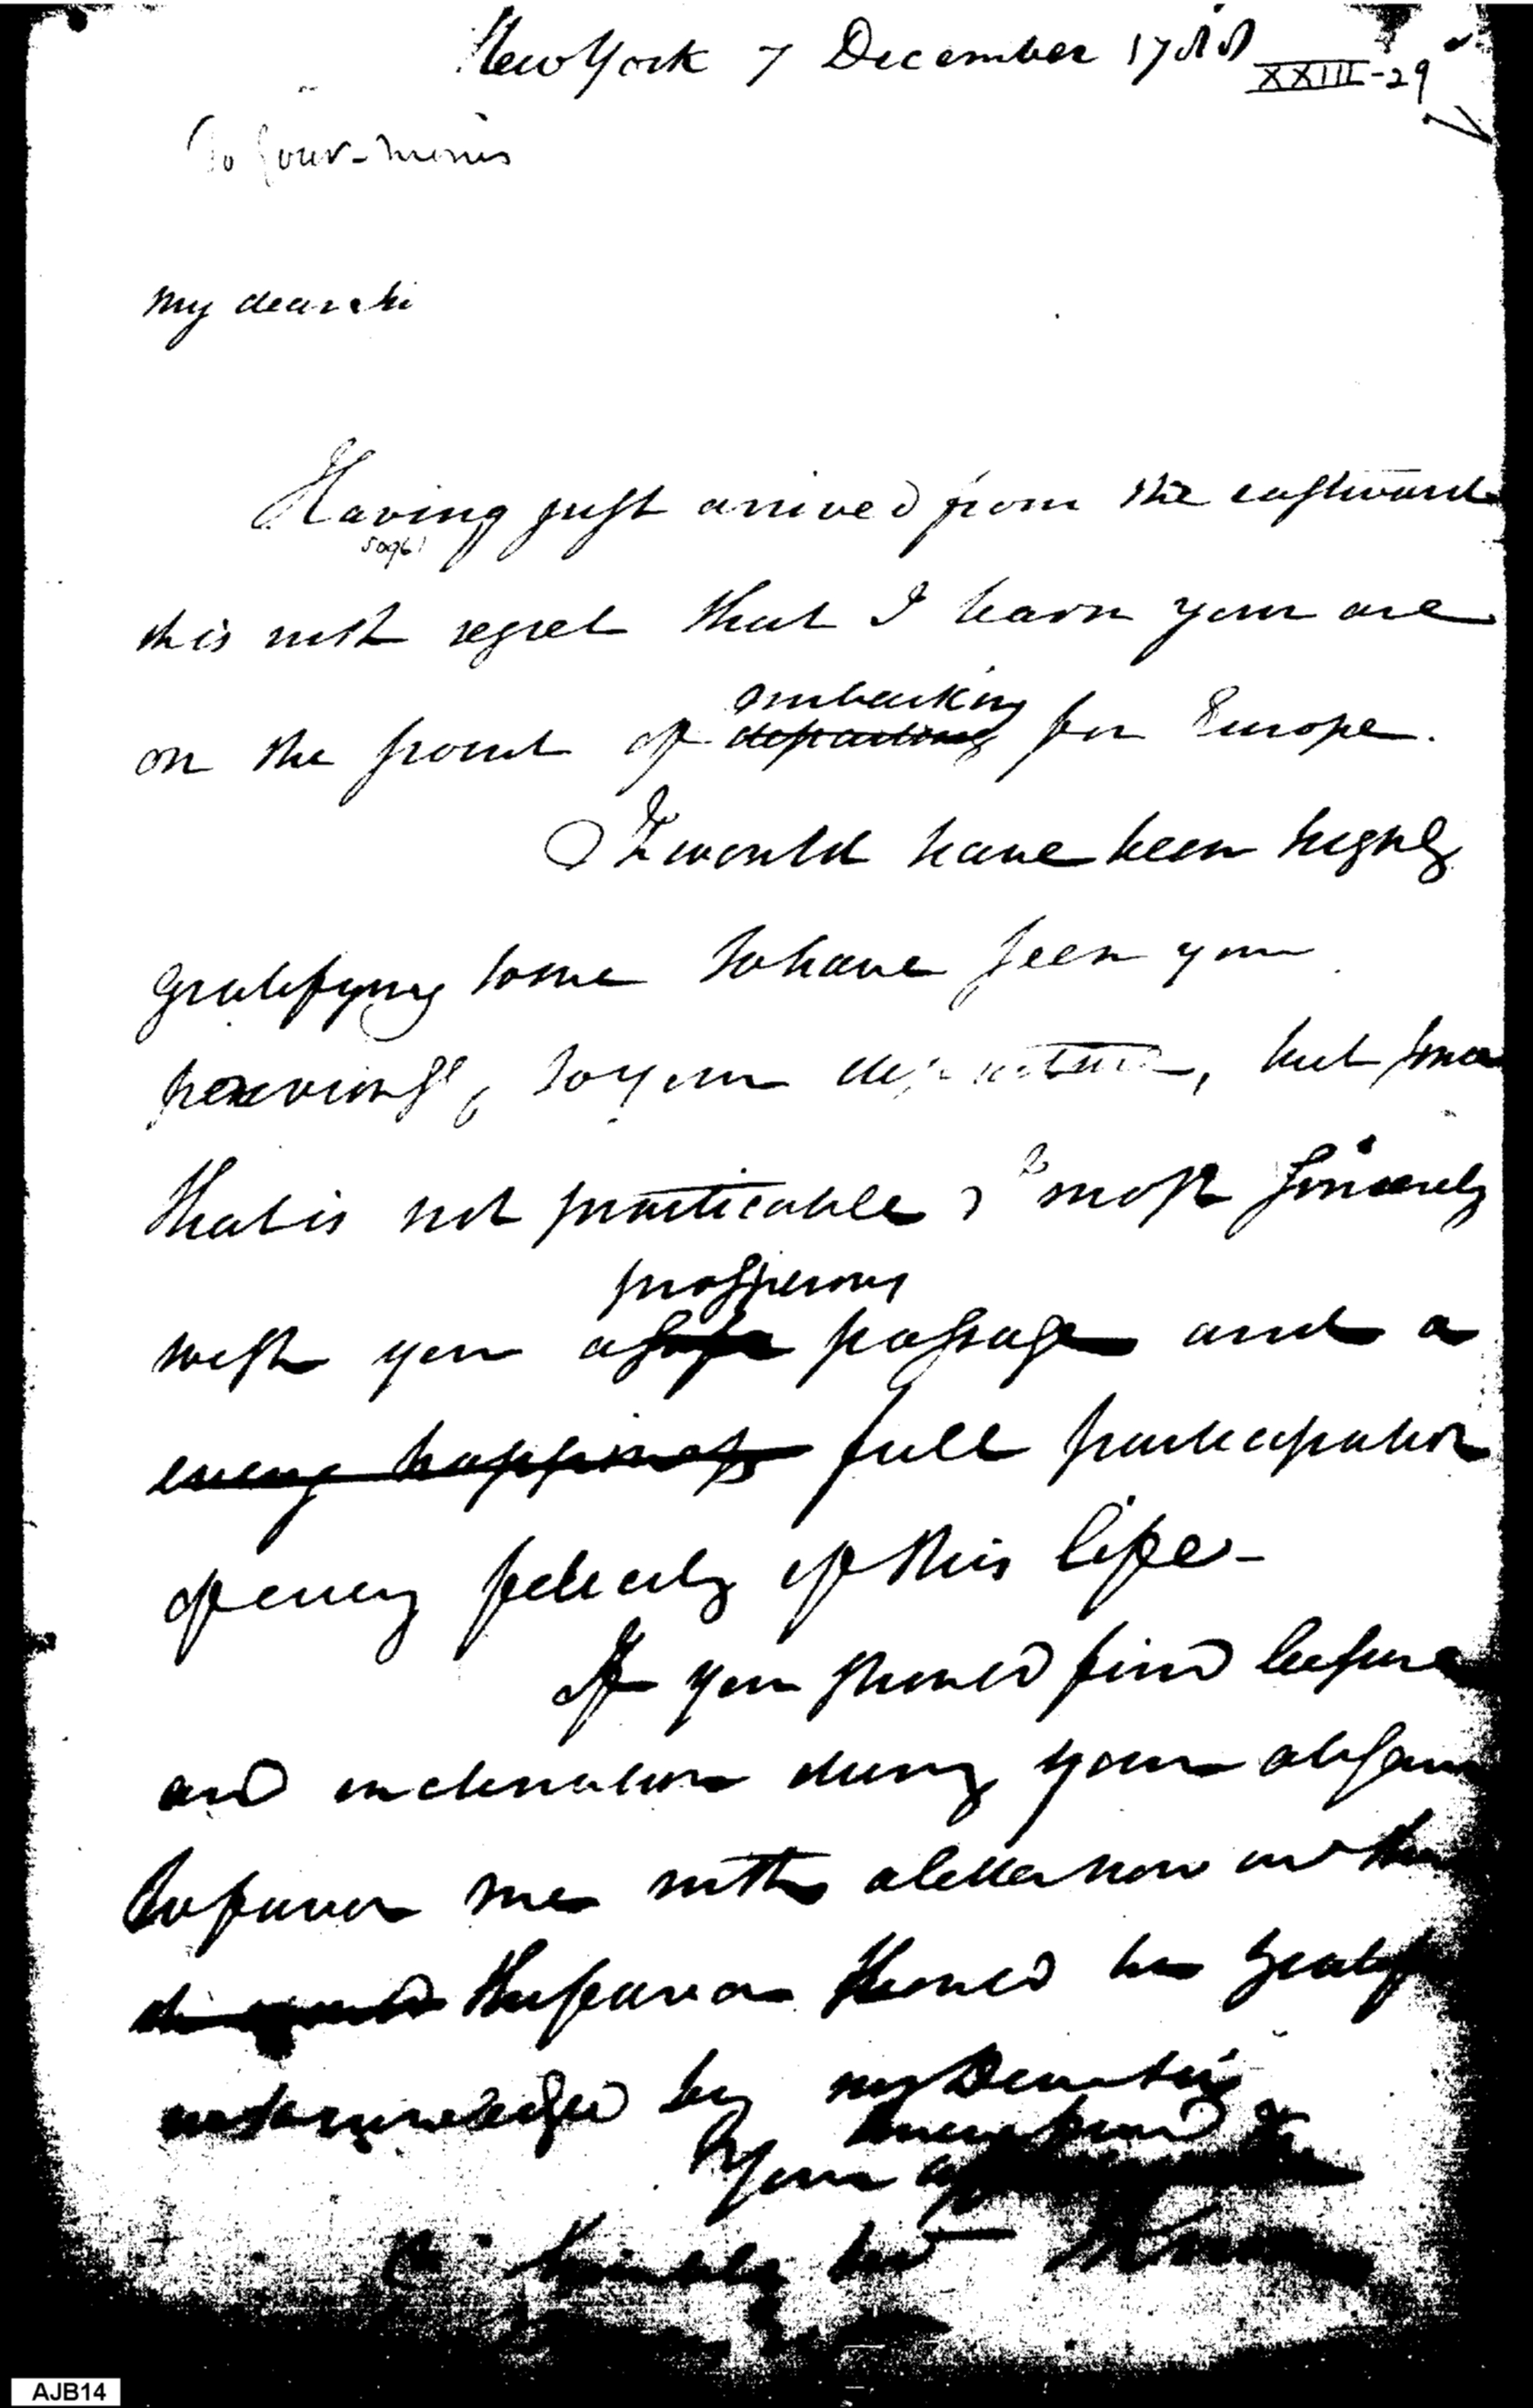 New York 7 December 1788
XXIII-29
To Gouv. Morris
My dear sir
Having just arrived from the eastward
50961
it is with regret that I learn you are
on the point of departing embarking for Europe.
It would have been highly
gratifying to me to have seen you
previously to your departure, but since
that is not practicable I most sincerely
wish you a safe prosperous passage and a
every happiness full participation
of every felicity of this life-
If you should find leisure
and inclination during your absence
to favor me with a letter now and then
the favor should be
acknowledged by my Dear sir
Your
humble
AJB14